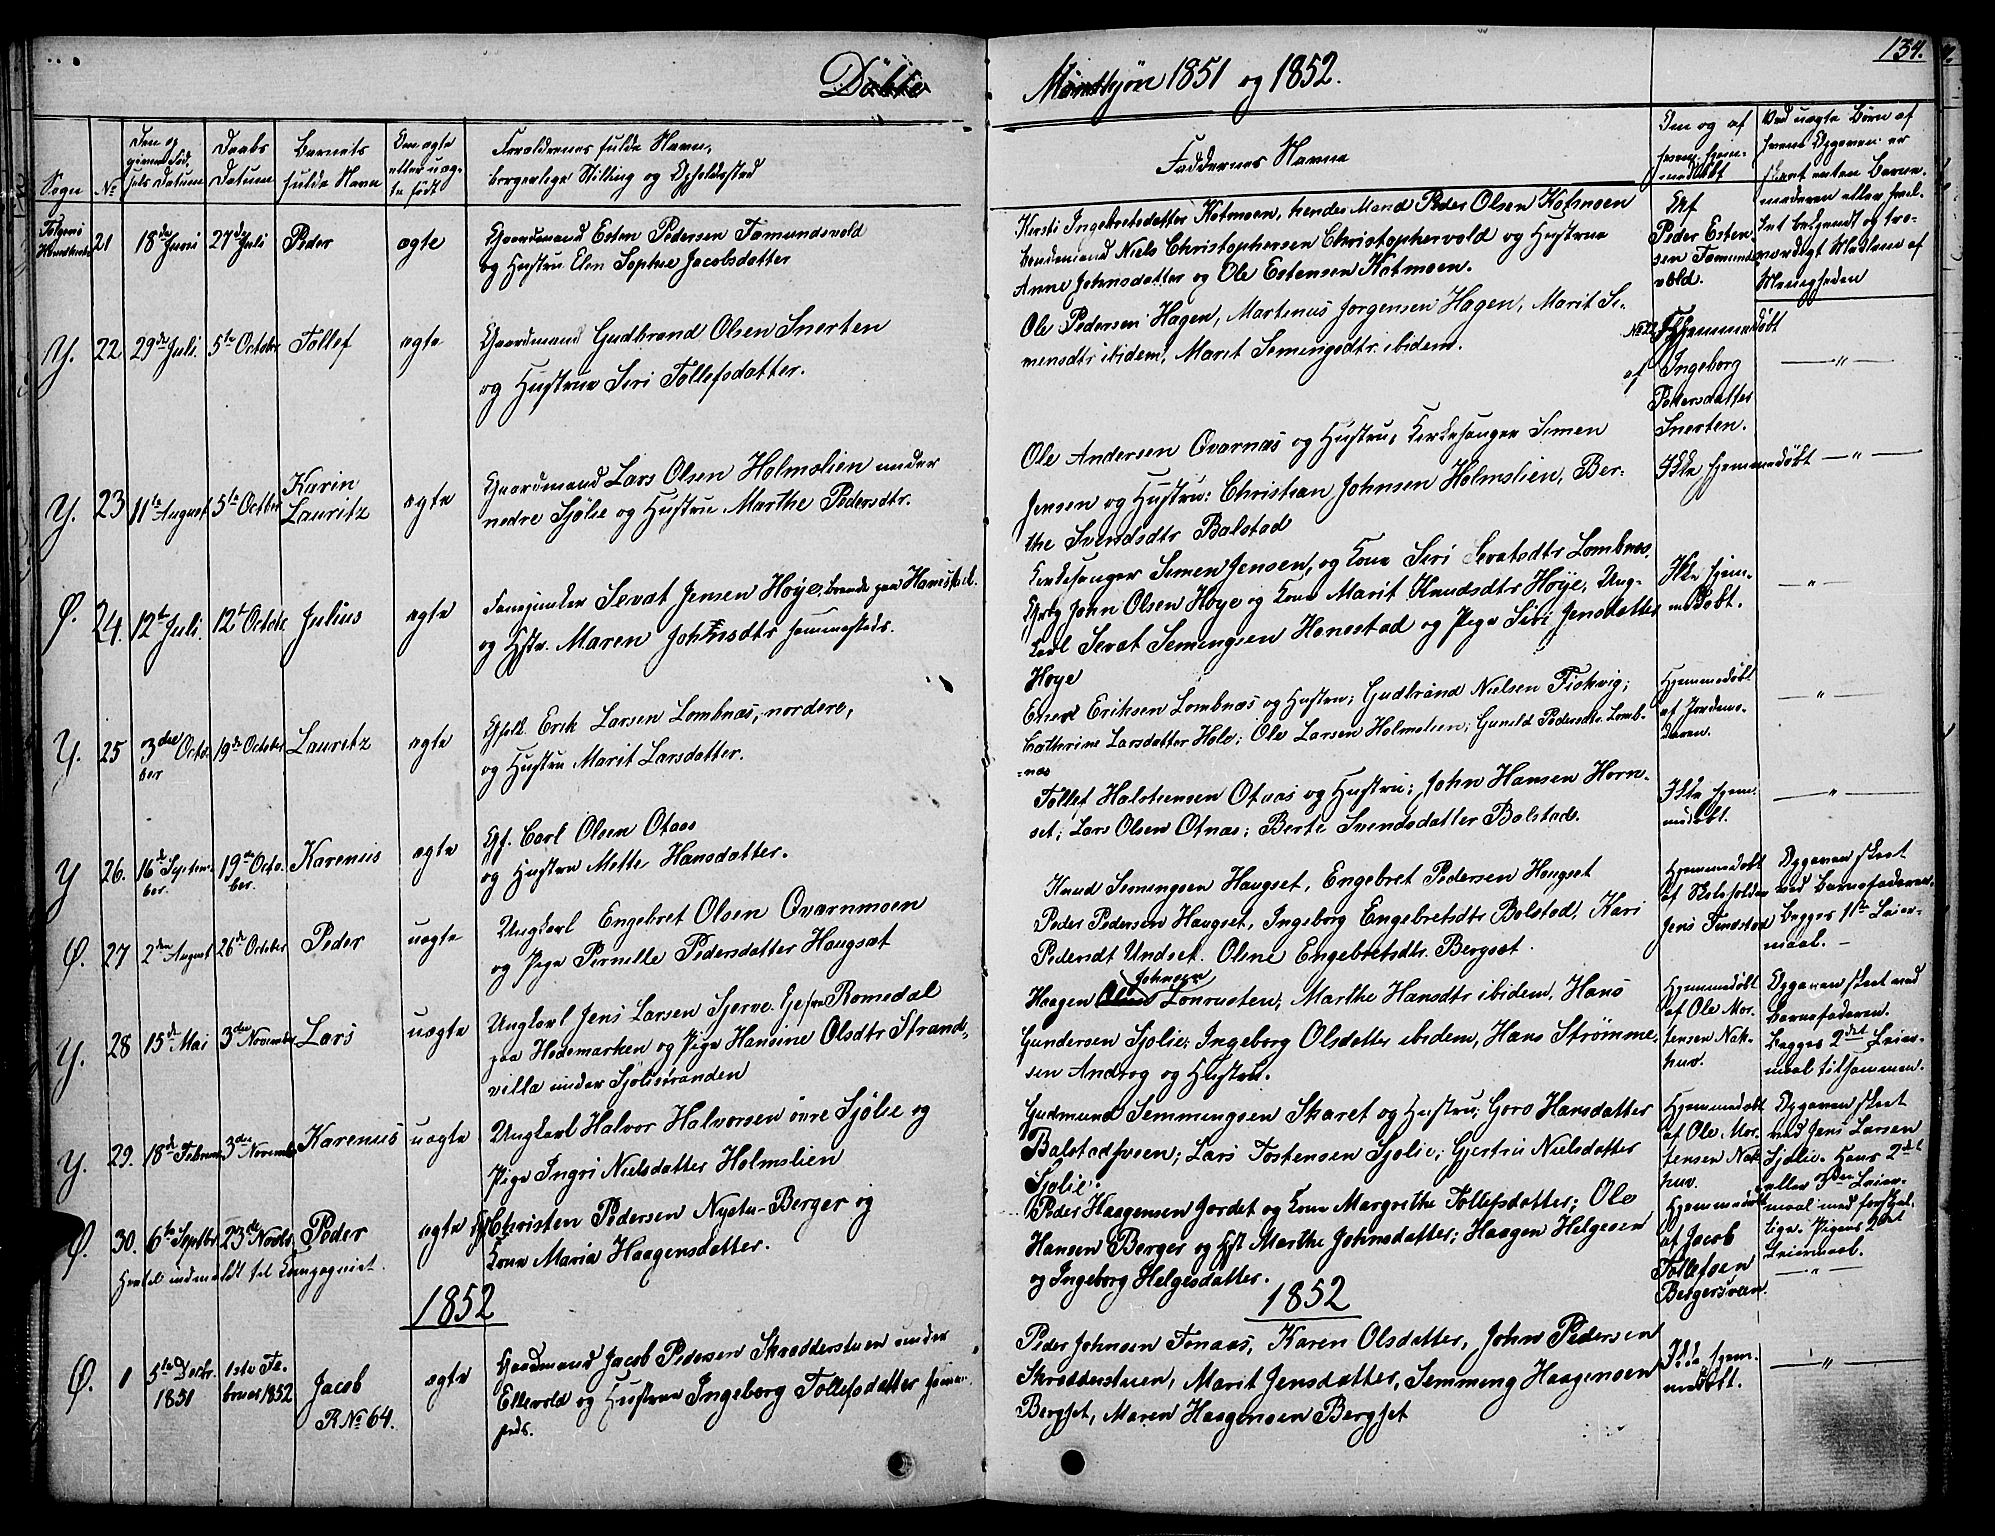 134.
Døbte Mandkjøn 1851 og 1852.
Sogn
No
Den og
Daabs
Datum
Barnets
fulde Navn
Om ægte
eller uæg-
te født
Forældrenes fulde Navn,
borgerlige Stilling og Opholdssted
Faddernes Navne
Om og af
hvem hjem-
medøbt
Ved uægte Børn af
hvem Opgaven er
skeet enten Barne-
moderen eller
bekjendt og tro-
værdigt Medlem af
Menigheden
21 18de Juni 27de Juli Peder ægte
Gaardmand Esten Pedersen Tamundsvold
og Hustru Elen Sophie Jacobsdatter
Kersti Ingebretsdatter Kotmoen, hendes Mand Peder Olsen Kotmoen
Bondemand Niels Christophersen Christophervold og Hustrue
Anne Johnsdatter og Ole Estensen Kotmoen.
Peder Esten-
sen Tamunds-
vold.
Y. 22 29de Juli. 5te October Tollef ægte
Gaardmand Gudbrand Olsen Snerten
og Hustrue Siri Tollefsdatter.
Ole Pedersen Hagen, Martinus Jørgensen Hagen, Marit Si-
mensdtr ibidem, Marit Semingsdtr. ibidem.
No 22 Hjemmedøbt
af Ingeborg
Pedersdatter
Snerten.
— " —
Y. 23 11te August 5te Octber Karin
Lauritz ægte
Gaardmand Lars Olsen Holmslien under
nedre Sjølie og Hustru Marthe Pedersdtr.
Ole Andersen Qvarnæs og Hustru; Kirkesanger Simen
Jensen og Hustru: Christian Johnsen Holmslien, Ber-
the Svendsdtr Balstad
Ikke hjemmedøbt — " —
Ø. 24. 12te Juli. 12te Octobr Julius ægte
Fanejunker Sevat Jensen Høye, boende paa Hanestad.
og Hstr. Maren Johnsdtr sammesteds.
Kirkesanger Simen Jensen, og Kone Siri Sevatsdtr Lombnæs.
John Olsen Høye og Kone Marit Knudsdtr Høye, Ung-
karl Sevat Semingsen Hanestad og Pige Siri Jensdatter
Høye
Ikke hjem-
medøbt.
— " —
Y. 25 3die Octo-
ber 19de October Lauritz ægte
Erik Larsen Lombnæs, nordere,
og Hustru Marit Larsdatter.
Einar Eriksen Lombnæs og Hustru; Gudbrand Nielsen Fiskvig;
Cathrine Larsdatter Hole; Ole Larsen Holmslien; Gunild Pedersdtr. Lomb-
-næs
Hjemmedøbt
af Jordemo-
deren.
— " —
Y 26. 16de Septem-
ber. 19de Octo-
ber. Karenius ægte
Gf. Carl Olsen Otnæs
og Hustru Mette Hansdatter.
Tollef Halstensen Otnæs og Hustru; John Hansen Horn-
set; Lars Olsen Otnæs; Berte Svendsdatter Bolstad.
Ikke hjem-
medøbt.
— " —
Ø. 27 2den August 26de October Peder uægte
Ungkarl Engebret Olsen Qvarnmoen
og Pige Pernille Pedersdatter Haugsæt
Knud Semingsen Haugset, Engebret Pedersen Haugset
Peder Pedersen Haugset, Ingeborg Engebretsdtr Bolstad, Kari
Pedersdt Undset. Oline Engebretsdtr. Bergsæt.
Hjemmedøbt
af Skoleholder
Jens Fondstad
Opgaven skeet
ved Barnefaderen.
Begges 1ste Leier-
maal. —
Y. 28 15de Mai 3die November Lars uægte
Ungkarl Jens Larsen Sjerve. fra Romedal
paa Hedemarken og Pige Hansine Olsdtr Strand-
villa under Sjølistranden
Haagen Johnsen Lonrusten; Marthe Hansdtr ibidem, Hans
Gundersen Sjølie; Ingeborg Olsdatter ibidem, Hans Strømme-
sen Andrag og Hustru.
Hjemmedøbt
af Ole Mor-
tensen Nok-
huv.
Opgaven skeet ved
Barnefaderen.
Begges 2det Leier-
maal tilsammen.
Y. 29. 18de Februar 3die Novemb. Karenius uægte
Ungkarl Halvor Halvorsen øvre Sjølie og
Pige Ingri Nielsdatter Holmslien
Gudmund Semmingsen Skaret og Hustru; Goro Hansdatter
Balstadhveen; Lars Tostensen Sjølie; Gjertru Nielsdatter
Sjølie.
Hjemmedøbt
af Ole Mor-
tensen Nok-
huv.
Opgaven skeet
ved Jens Larsen
Sjølie. Hans 2det
eller 3die Leier-
maal med forskjel-
lige. Pigens 2det
Leiermaal.
Ø. 30. 6te Septbr 23de Novbr Peder ægte
Christen Pedersen Nystu-Berger og
Kone Maria Haagensdatter.
indmeldt til Compagniet.
Peder Haagensen Jordet og Kone Margrethe Tollefsdatter; Ole
Hansen Berger og Hst Marthe Johnsdatter; Haagen Helgesen
og Ingeborg Helgesdatter.
Hjemmedøbt
af Jacob
Tollefsen
Bergersvæn.
— " —
1852
1852
Ø. 1 5te Decbr.
1851 1ste Fe-
bruar 1852 Jacob
R No 64. ægte
Gaardmand Jacob Pedersen Skrædderstuen under
Ellevold og Hustrue Ingeborg Tollefsdatter samme-
steds.
Peder Johnsen Tønaas, Karen Olsdatter, John Pedersen
Skrædderstuen, Marit Jensdatter, Semming Haagensen
Bergset, Maren Haagensen Bergset
Ikke hjem-
medøbt.
— " —